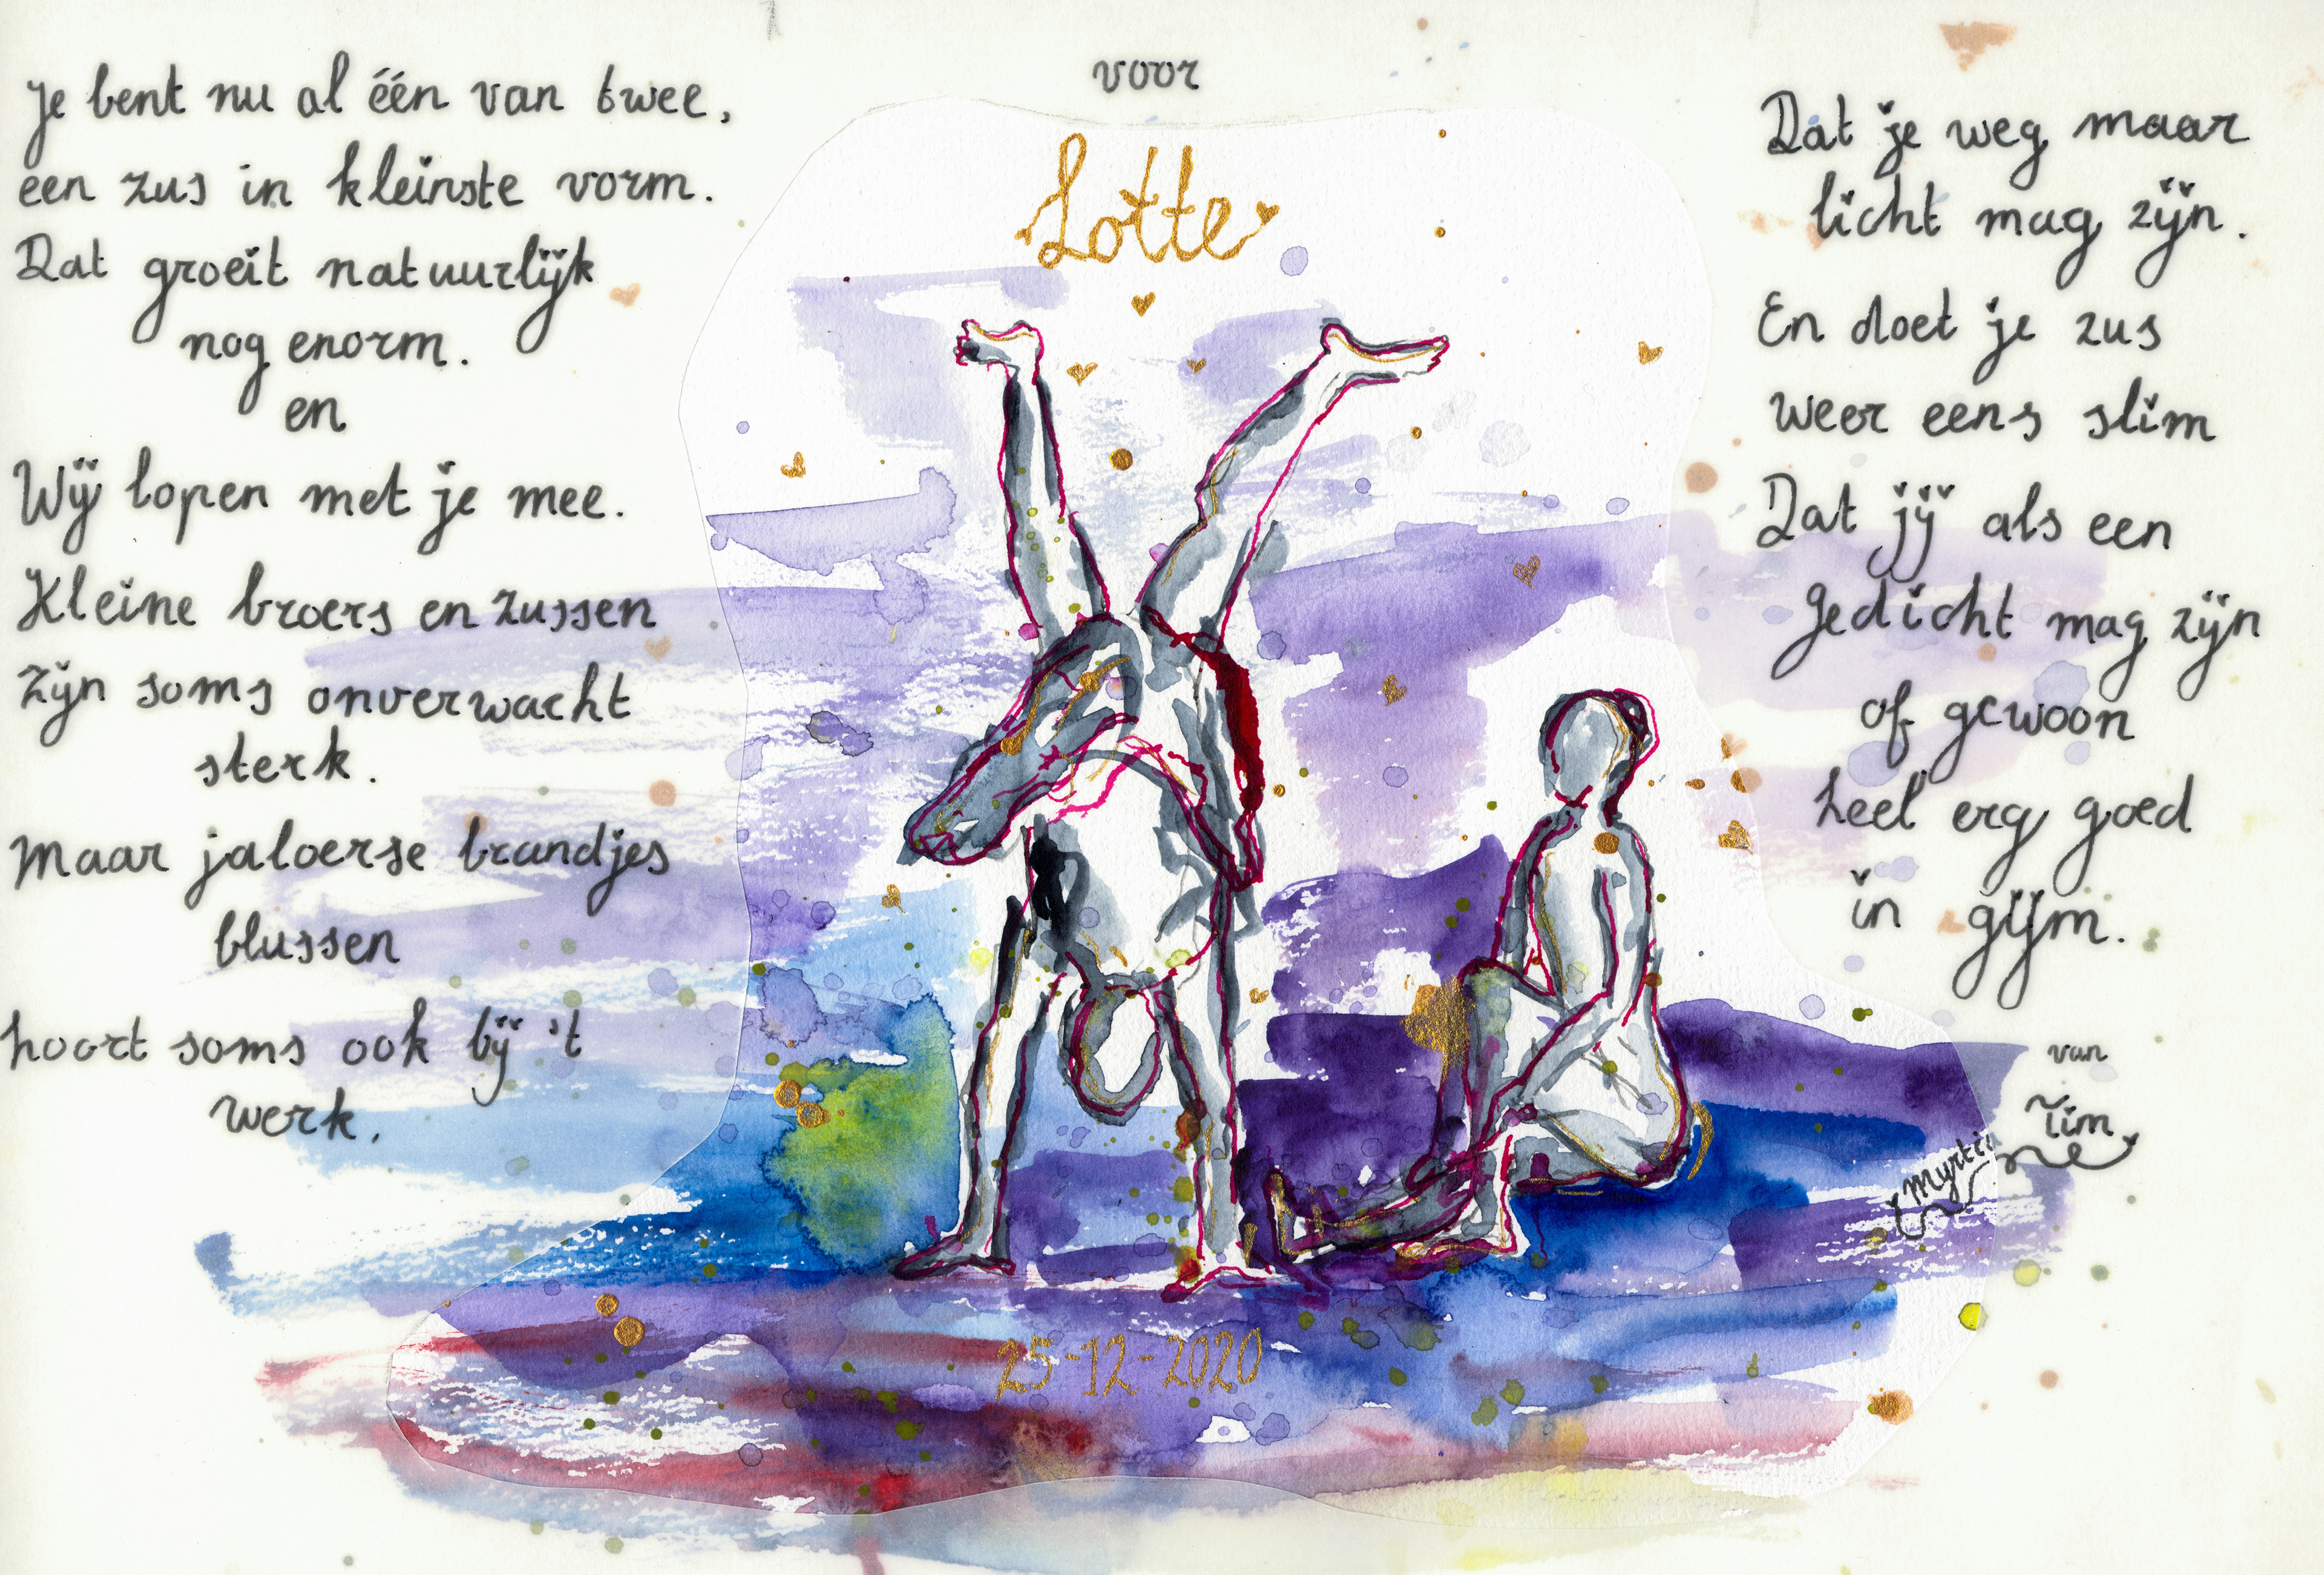 voor
Lotte
Je bent nu al één van twee,
een zus in kleinste vorm.
Dat groeit natuurlijk
nog enorm.
en
Wij lopen met je mee.
Kleine broers en zussen
zijn soms onverwacht
sterk.
Maar jaloerse brandjes
blussen
hoort soms ook bij 't
werk.
Dat je weg maar
licht mag zijn.
En doet je zus
weer eens slim
Dat jij als een
gedicht mag zijn
of gewoon
heel erg goed
in gijm.
van
Tim
25-12-2020